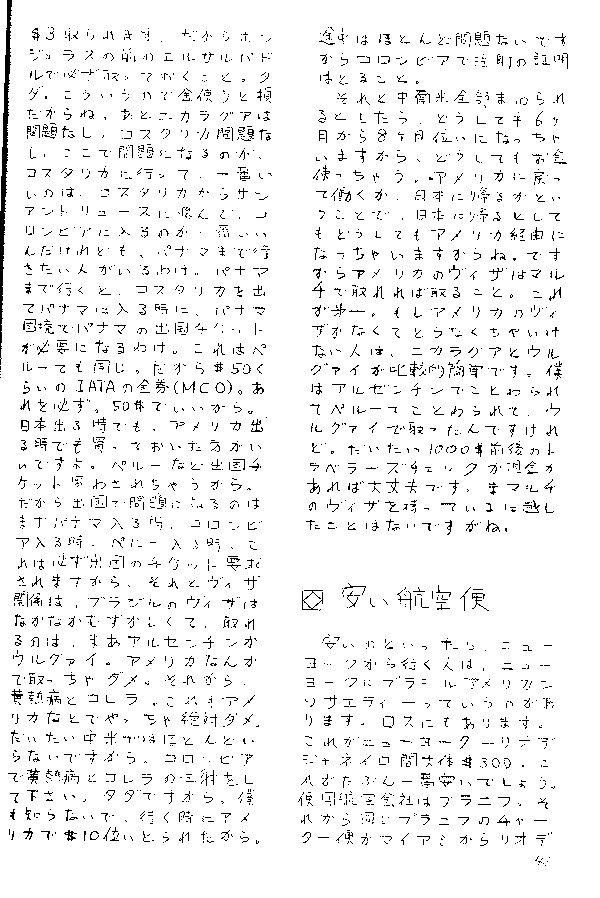 $3取られます。だからホン
ジュラスの前のエルサルバド
ルで必ず取っておくこと。タ
ダ。こういうので金使うと損
だからね。あとニカラグアは
問題なし。コスタリカ問題な
し。ここで問題になるのが、
コスタリカに行って、一番い
いのは、コスタリカからサン
アンドリュースに飛んで、コ
ロンビアに入るのが一番いい
んだけれども、パナマまで行
きたい人がいるわけ。パナマ
まで行くと、コスタリカを出
てパナマに入る時に、パナマ
国境でパナマの出国チケット
が必要になるわけ。これはペ
ルーでも同じ。だから$50く
らいのIATAの金券(MCO)。あ
れを必ず。50$でいいから。
日本出る時でも、アメリカ出
る時でも買っておいた方がい
いですよ。ペルーなど出国チ
ケット買わされちゃうから。
だから出国で問題になるのは
まずパナマ入る時、コロンビ
ア入る時、ペルー入る時、こ
れは必ず出国のチケット要求
されますから、それとヴィザ
関係は、ブラジルのヴィザは
なかなかむずかしくて、取れ
るのは、まあアルゼンチンか
ウルグァイ。アメリカなんか
で取っちゃダメ。それから、
黄熱病とコレラ。これもアメ
リカなどでやっちゃ絶対ダメ。
だいたい中米かはほとんどい
らないですから。コロンビア
で黄熱病とコレラの注射をし
て下さい。タダですから。僕
も知らないで、行く時にアメ
リカで$10位いとられたから。
途中はほとんど問題ないです
からコロンビアで注射の証明
はとること。
それと中南米全部まわられ
るとしたら、どうしても6ヶ
月から8ヶ月位いになっちゃ
いますから、どうしてもお金
使っちゃう。アメリカに戻っ
て働くか、日本に帰るかとい
うことで、日本に帰るとして
もどうしてもアメリカ経由に
なっちゃいますからね。です
からアメリカのヴィザはマル
チで取れれば取ること。これ
が第一。もしアメリカのヴィ
ザがなくてとらなくちゃいけ
ない人は、ニカラグアとウル
グァイが比較的簡単です。僕
はアルゼンチンでことわられ
てペルーでことわられて、ウ
ルグァイで取ったんですけれ
ど。だいたい1000$前後のト
ラベラーズチェックか現金が
あれば大丈夫です。まマルチ
のヴィザを持っているに越し
たことはないですがね。
安い航空便
安いのといったら、ニュー
ヨークから行く人は、ニュー
ヨークにブラジルアメリカン
ソサエティーっていうのがあ
ります。ロスにもあります。
これがニューヨークーリオデ
ジャネイロ間大体$300、こ
れがたぶん一番安いでしょう。
使用航空会社はブラニフ。そ
れから同じブラニフのチャー
ター便がマイアミからリオデ